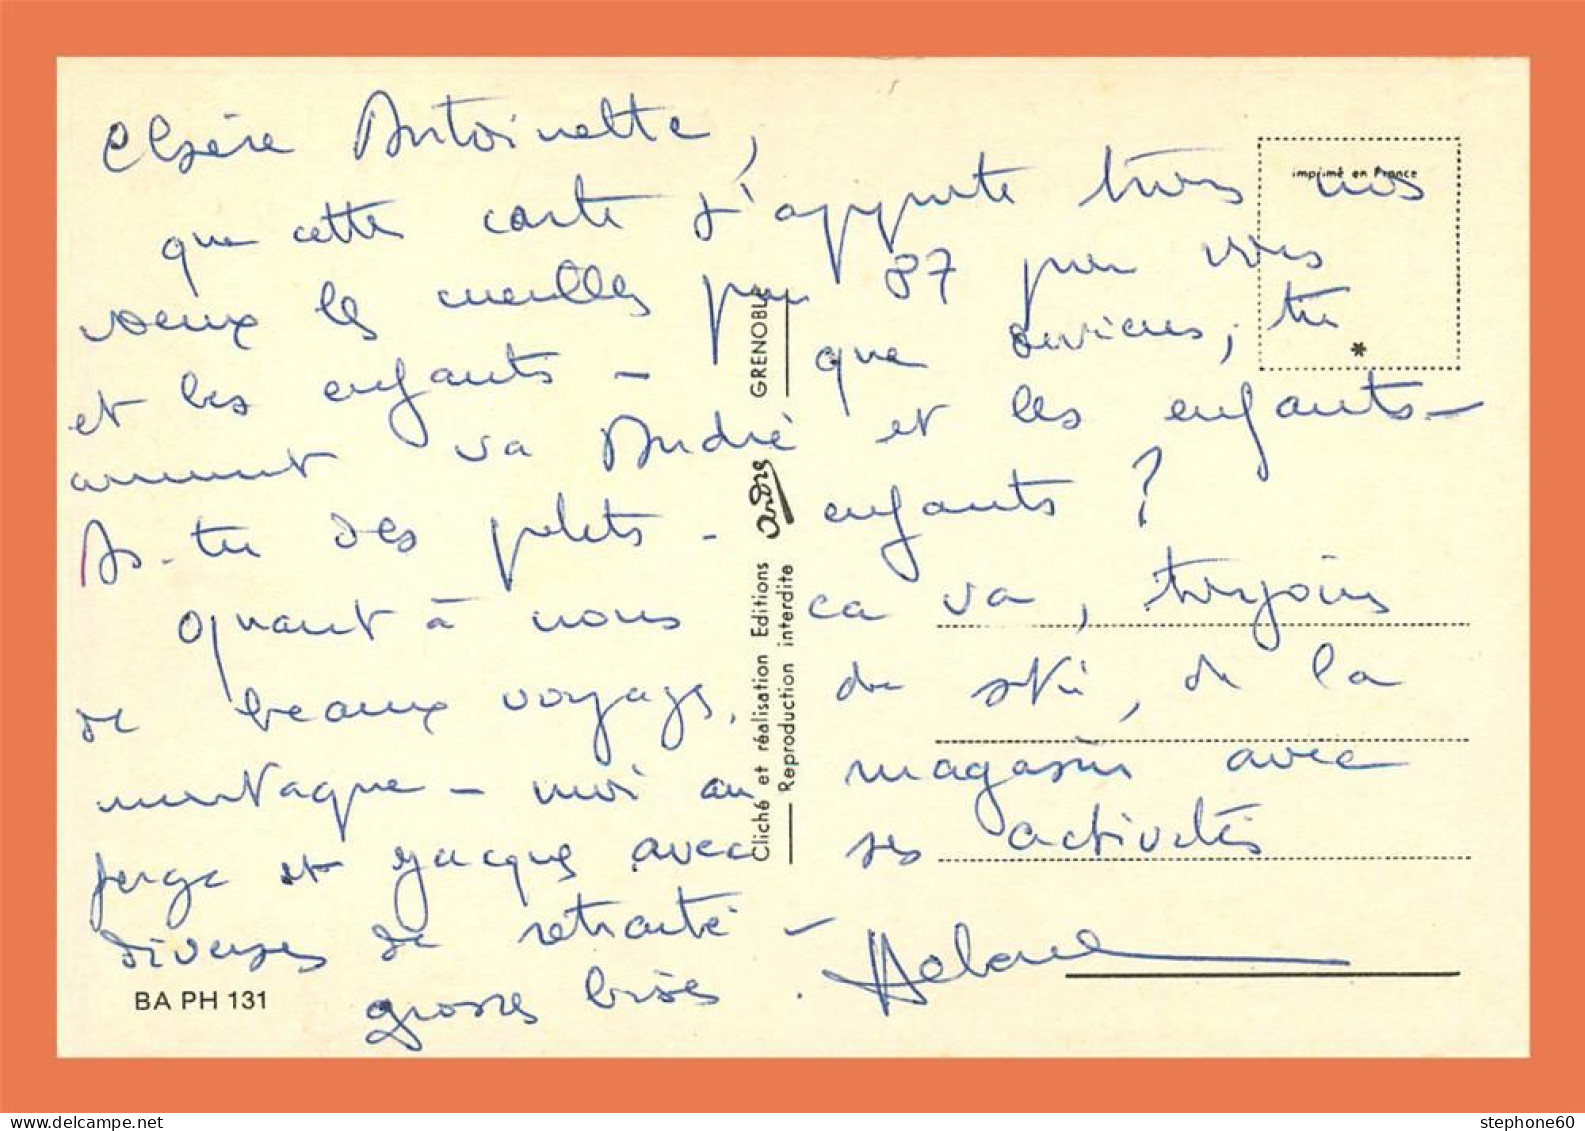 Chère Antoinette,
que cette carte t'apporte tous nos
voeux les meilleurs pour 87 pour vous
et les enfants - que deviens, tu
comment va André et les enfants -
As-tu des petits - enfants ?
quant à nous ca va, toujours
de beaux voyages, du ski, de la
montagne - moi au magasin avec
et Jacques avec ses activités
diverses de retraité -
grosses bises.
imprimé en France
*
Cliché et réalisation Editions André GRENOBLE
Reproduction interdite
BA PH 131
stephone60